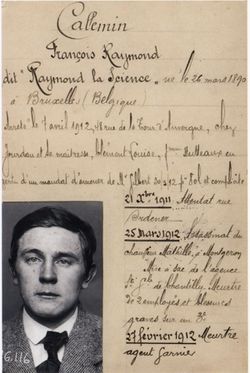 Callemin
François Raymond
dit "Raymond la Science" né le 26 mars 1890
à Bruxelles (Belgique)
7 avril 1912, 48 rue de la Tour d'Auvergne, chez
Jourdan et sa maîtresse, Clément Louise, fme Dutteaux en
d'un mandat d'amener de Mr Gilbert
21 Xbre 1911 Attentat rue
Ordener
25 mars 1912 Assassinat du
chauffeur Mathillé, à Montgeron
Mise à sac de l'agence
Sté Gle de Chantilly. Meurtre
de 2 employés et blessures
graves sur un 3e.
27 février 1912 Meurtre
agent Garnier
G.116